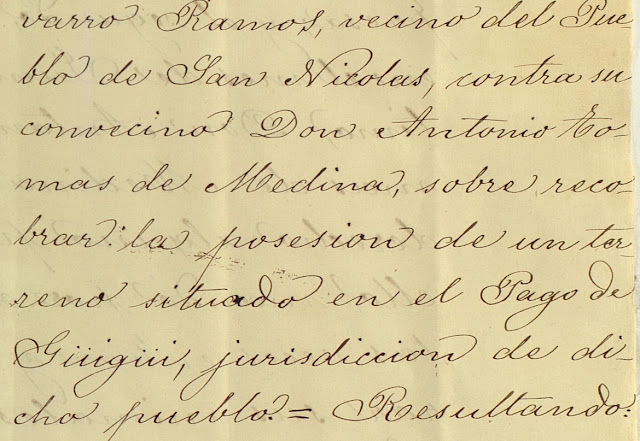 varro Ramos, vecino del Pue-
blo de San Nicolas, contra su
convecino Don Antonio To-
mas de Medina, sobre reco-
brar la posesion de un ter-
reno situado en el Pago de
Güigüi, jurisdiccion de di-
cho pueblo. = Resultando: